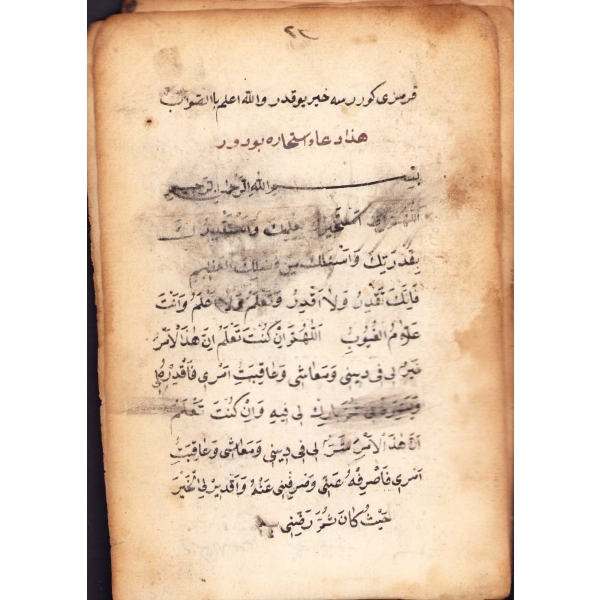 ٢٣
قرمزی کوررسه خیر یوقدر والله اعلم باالصواب
هذا دعاء استخاره بودور
بِسْمِ اللهِ الرَّحْمٰنِ الرَّحِيمِ
اَللّٰهُمَّ اِنِّى اَسْتَخِيرُكَ بِعِلْمِكَ وَاَسْتَقْدِرُكَ
بِقُدْرَتِكَ وَاَسْئَلُكَ مِنْ فَضْلِكَ الْعَظِيمِ
فَاِنَّكَ تَقْدِرُ وَلَا اَقْدِرُ وَتَعْلَمُ وَلَا اَعْلَمُ وَاَنْتَ
عَلَّامُ الْغُيُوبِ اَللّٰهُمَّ اِنْ كُنْتَ تَعْلَمُ اَنَّ هٰذَا الْاَمْرَ
خَيْرٌ لِى فِى دِينِى وَمَعَاشِى وَعَاقِبَتِ اَمْرِى فَاَقْدِرْهُ لِى
وَيَسِّرْهُ لِى ثُمَّ بَارِكْ لِى فِيهِ وَاِنْ كُنْتَ تَعْلَمُ
اَنَّ هٰذَا الْاَمْرَ شَرٌّ لِى فِى دِينِى وَمَعَاشِى وَعَاقِبَتِ
اَمْرِى فَاَصْرِفْهُ عَنِّى وَصَرِفْنِى عَنْهُ وَاَقْدِيرْ لِىَ الْخَيْرَ
حَيْثُ كَانَ ثُمَّ رَضِّنِى بِهِ